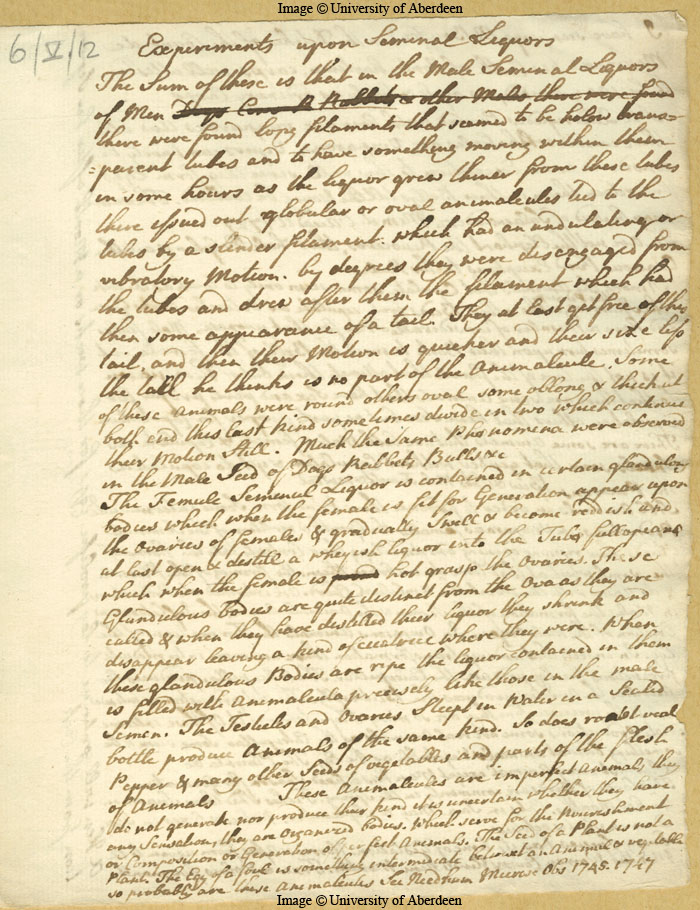 Image © University of Aberdeen
6/V/12
Experiments upon Seminal Liquors
The Sum of these is that in the Male Seminal Liquors
of Men Dogs Rabbits & other Males there were found
there were found long filaments that seemed to be holow trans=
=parent tubes and to have something moving within them
in some hours as the liquor grew thiner from these tubes
there issued out globular or oval animalcules tied to the
tubes by a slender filament. which had an undulating or
vibratory Motion. by degrees they were disengaged from
the tubes and drew after them the filament which had
then some appearance of a tail. They at last get free of this
tail. and then their Motion is quicker and their size less
the tail he thinks is no part of the Animalcule. Some
of these Animals were round others oval some oblong & thick at
both end this last kind sometimes divide in two which continue
their Motion still. Much the same Phonomena were observed
in the Male Seed of Dogs Rabbets Bulls &c
The Female Seminal Liquor is contained in certain glandulous
bodies which when the female is fit for Generation appear upon
the ovaries of females & gradually Swell & become reddish and
at last open & destill a wheyish liquor into the Tubæ fallopeanæ
which when the female is hot grasp the Ovaries. These
Glandulous bodies are quite distinct from the Ova as they are
called & when they have destilled their liquor they shrink and
disappear leaving a kind of cicatrice where they were. When
these glandulous Bodies are ripe the liquor contained in them
is filled with Animalcula precisely like those in the male
Semen. The Testicles and Ovaries Steept in Water in a Sealed
bottle produce Animals of the same kind. So does roast veal
Pepper & many other Seeds of vegetables and parts of the flesh
of Animals These Animalcules are imperfect Animals they
do not generate nor produce their kind it is uncertain whether they have
any Sensation, they are Organized bodies. which serve for the Nourishment
or Composition or Generation of perfect Animals. The Seed of a Plant is not a
Plant. The Egg of a foul is something intermediate betwixt an Animal & vegetable
so probably are these Animalcules See Needham Microsc Obs 1745. 1747
Image © University of Aberdeen